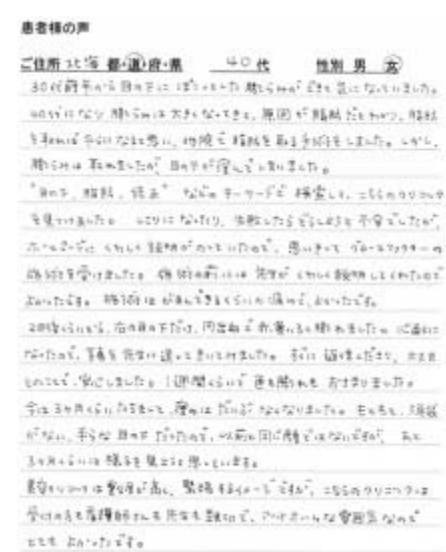 患者様の声
ご住所 北海 都・道・府・県 40代 性別 男 女
30代前半から目の下にぽこっとした膨らみができて気になっていました。
40代になり膨らみは大きくなってきて、原因が脂肪だとわかり、脂肪
を取れば平らになると思い、他院で脂肪を取る手術をしました。しかし、
膨らみは取れましたが、目の下が窪んでしまいました。
"目の下、脂肪、修正" などのキーワードで検索して、こちらのクリニック
を見つけました。しこりになったり、失敗したらどうしようと不安でしたが、
ホームページにくわしく説明がのっていたので、思いきってグロースファクターの
施術を受けました。施術の前には先生がくわしく説明してくれたので
よかったです。施術はがまんできるくらいの痛みで、よかったです。
2日後くらいから、右の目の下だけ、内出血で赤紫いろに腫れました。心配に
なったので、写真を先生に送ってきいてみました。すぐに返信くださり、大丈夫
とのことで、安心しました。1週間くらいで色も腫れもおさまりました。
今は3か月くらいたちまして、窪みはだいぶなくなりました。もともと、涙袋
がない、平らな目の下だったので、以前と同じ顔ではないですが、あと
3か月くらいは様子を見ようと思っています。
美容クリニックは敷居が高く、緊張するイメージですが、こちらのクリニックは
受付の方も看護師さんも先生も親切で、アットホームな雰囲気なので
とてもよかったです。